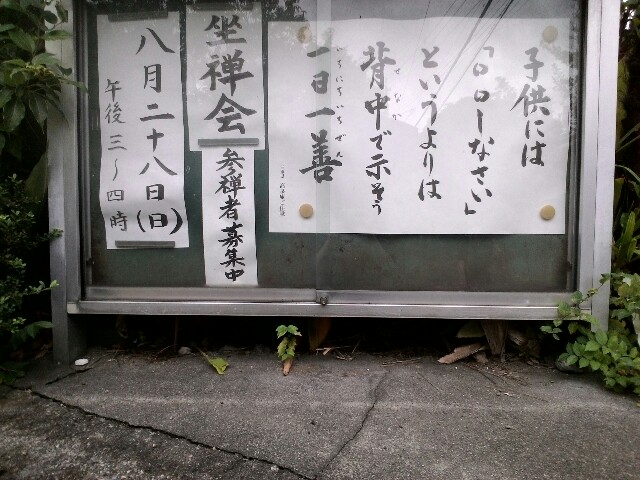 子供には
「○○しなさい」
というよりは
背中で示そう
せなか
一日一善
いちにちいちぜん
坐禅会
参禅者募集中
八月二十八日(日)
午後三〜四時